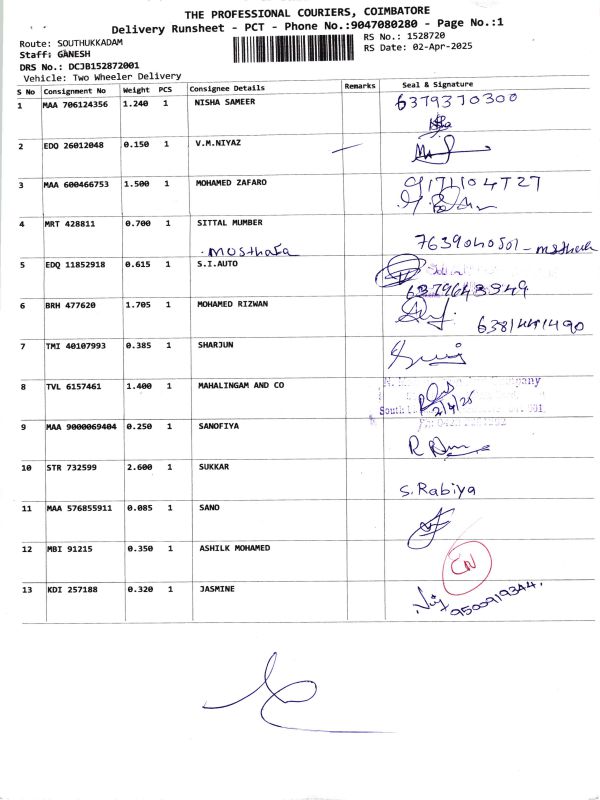 THE PROFESSIONAL COURIERS, COIMBATORE
Delivery Runsheet - PCT - Phone No.:9047080280 - Page No.:1
Route: SOUTHUKKADAM
RS No.: 1528720
Staff: GANESH
RS Date: 02-Apr-2025
DRS No.: DCJB152872001
Vehicle: Two Wheeler Delivery
S No Consignment No Weight PCS Consignee Details Remarks Seal & Signature
1 MAA 706124356 1.240 1 NISHA SAMEER 6379370300
2 EDQ 26012048 0.150 1 V.M.NIYAZ
3 MAA 600466753 1.500 1 MOHAMED ZAFARO 9171104727
4 MRT 428811 0.700 1 SITTAL MUMBER
musthafa
5 EDQ 11852918 0.615 1 S.I.AUTO
6 BRH 477620 1.705 1 MOHAMED RIZWAN
6381441490
7 TMI 40107993 0.385 1 SHARJUN
8 TVL 6157461 1.400 1 MAHALINGAM AND CO
2/4/25
9 MAA 9000069404 0.250 1 SANOFIYA
10 STR 732599 2.600 1 SUKKAR
S.Rabiya
11 MAA 576855911 0.085 1 SANO
12 MBI 91215 0.350 1 ASHILK MOHAMED
CN
13 KDI 257188 0.320 1 JASMINE
9500919344.